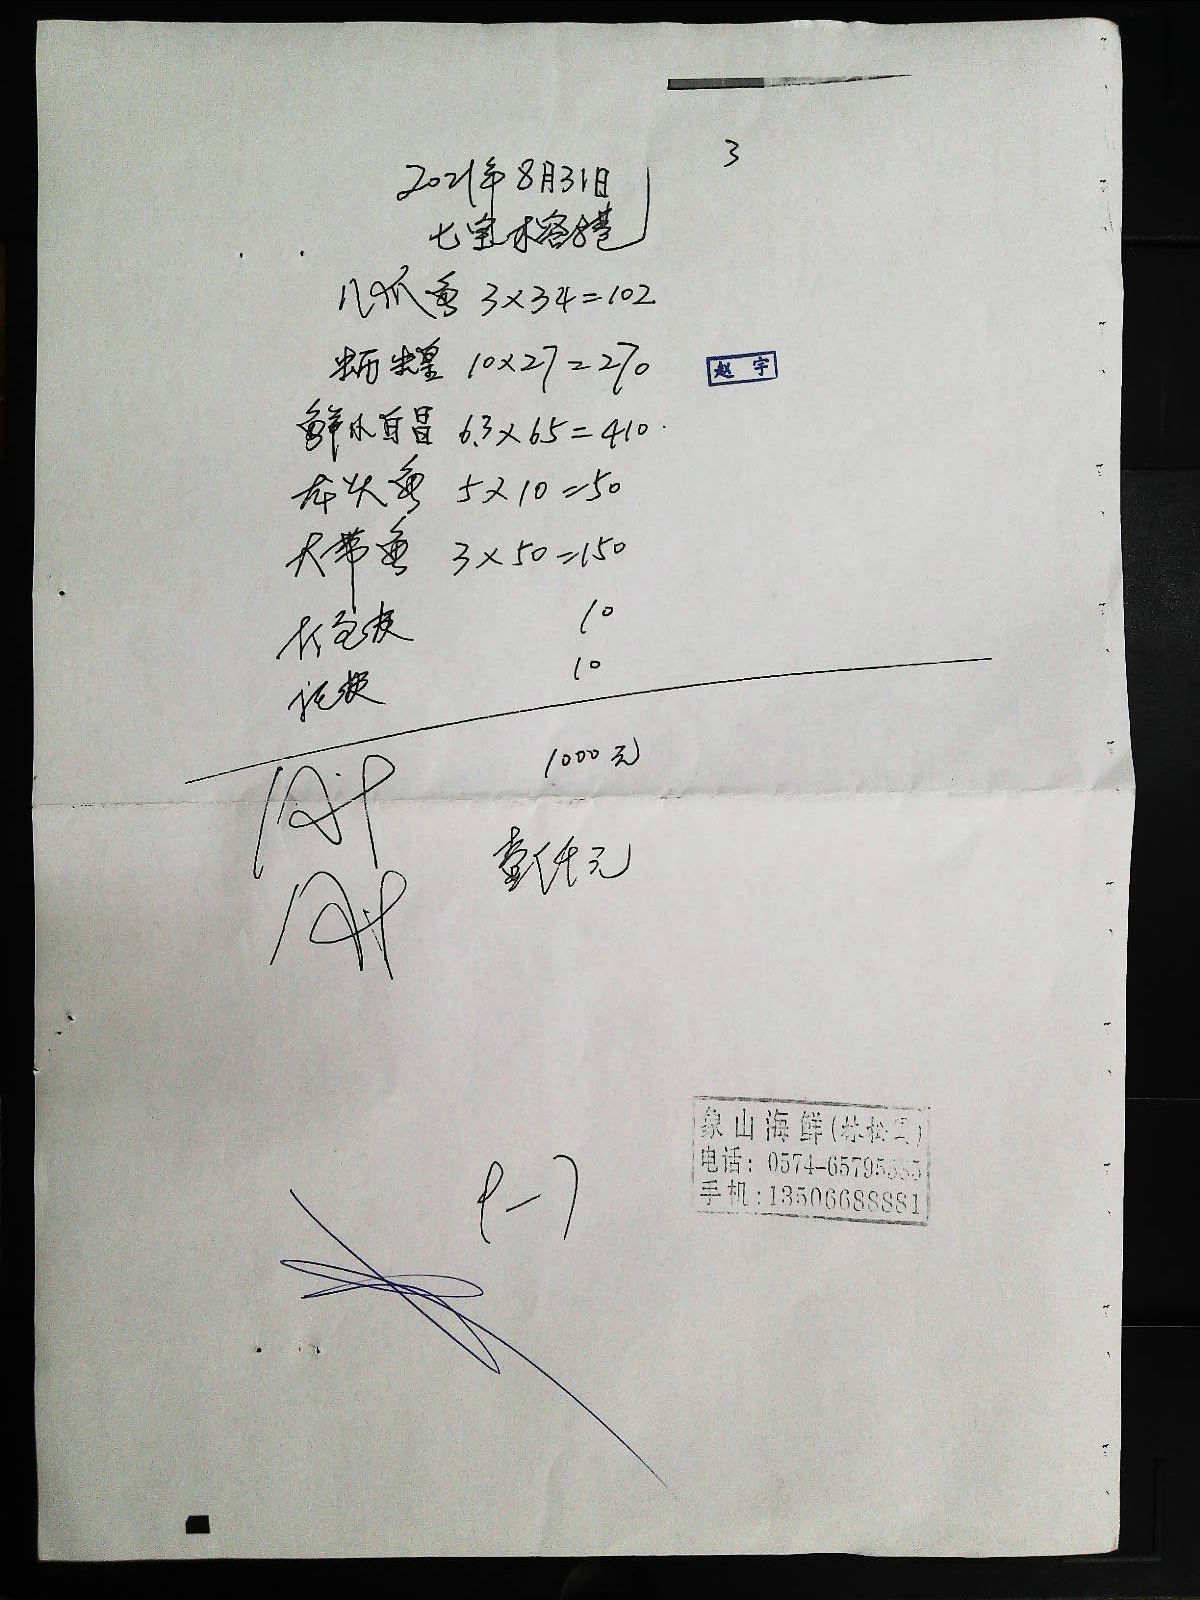 3
2021年8月31日
七宝木容8巷
八爪鱼 3×34=102
蛃蝗 10×27=270
赵宇
鲜小自昌 6.3×65=410
龙头鱼 5×10=50
大带鱼 3×50=150
打包费 10
托费 10
1000元
壹仟元
象山海鲜(林松
电话: 0574-65795
手机:13506688881